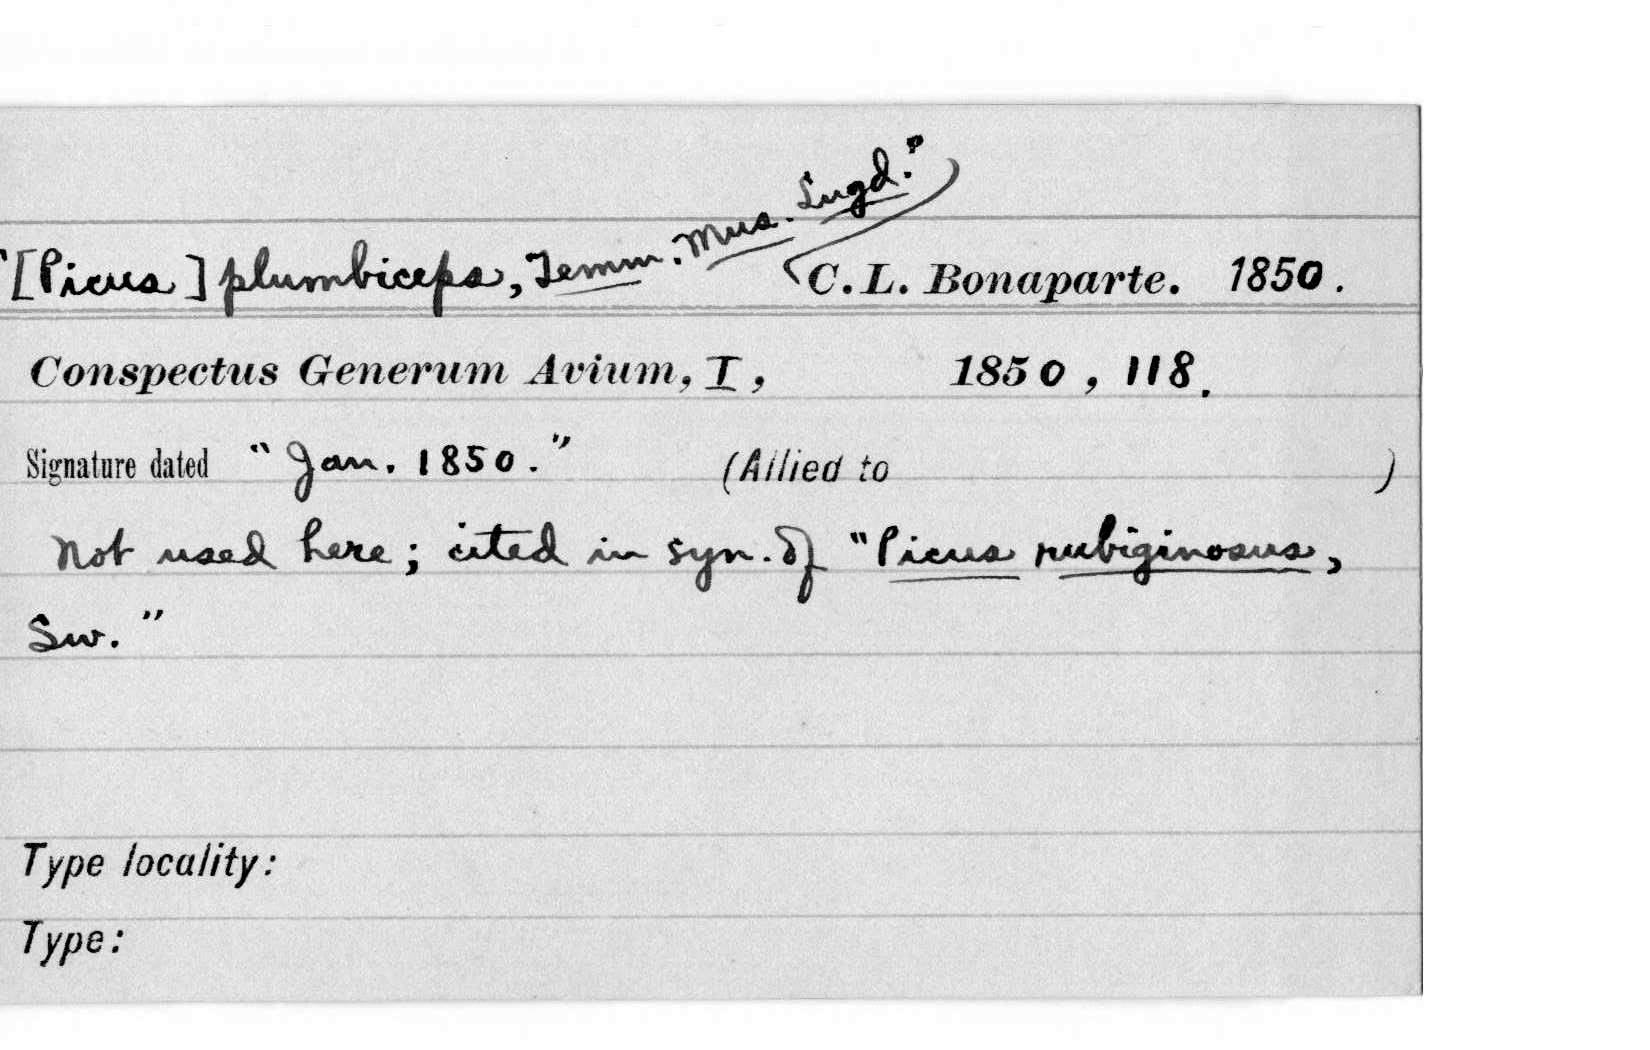 "[Picus] plumbiceps, Temm. Mus. Lugd."
C. L. Bonaparte. 1850.
Conspectus Generum Avium, I, 1850, 118.
Signature dated "Jan. 1850." (Allied to )
Not used here; cited in syn. of "Picus rubiginosus,
Sw."
Type locality:
Type: